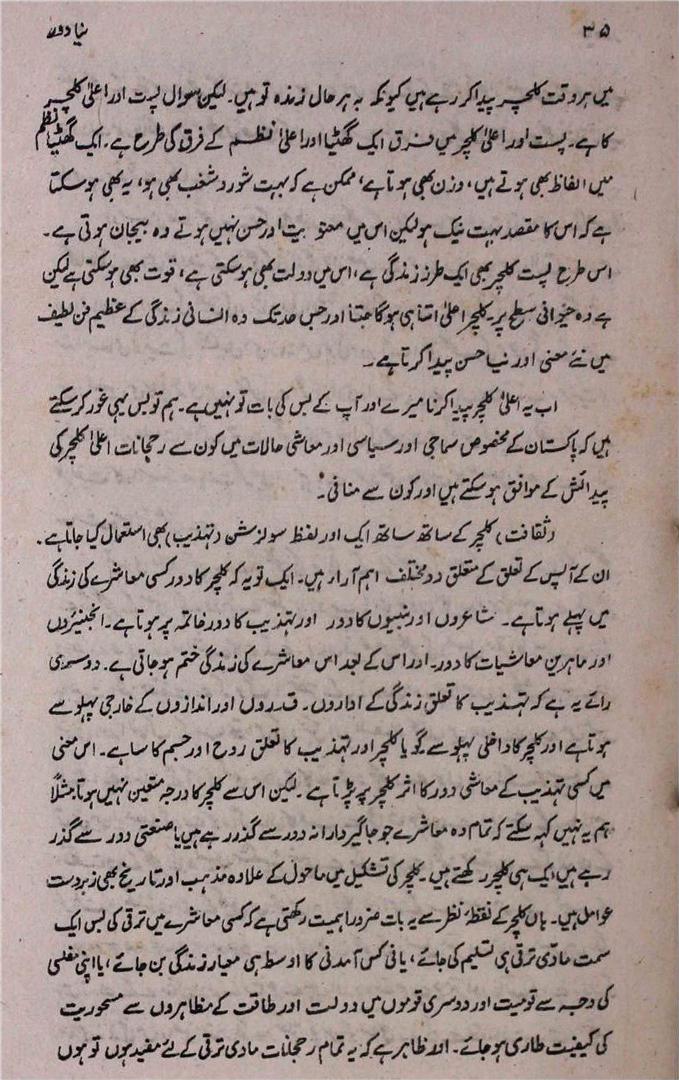 ۳۵ نیا دور
میں ہر وقت کلچر پیدا کر رہے ہیں کیونکہ بہ ہر حال زندہ تو ہیں۔ لیکن سوال پست اور اعلیٰ کلچر
کا ہے۔ پست اور اعلیٰ کلچر میں فرق ایک گھٹیا اور اعلیٰ نظم کے فرق کی طرح ہے۔ ایک گھٹیا نظم
میں الفاظ بھی ہوتے ہیں، وزن بھی ہوتا ہے، ممکن ہے کہ بہت شور و شغب بھی ہو، یہ بھی ہو سکتا
ہے کہ اس کا مقصد بہت نیک ہو لیکن اس میں معنویت اور حسن نہیں ہوتے وہ بیجان ہوتی ہے۔
اس طرح پست کلچر بھی ایک طرز زندگی ہے، اس میں دولت بھی ہو سکتی ہے، قوت بھی ہو سکتی ہے لیکن
ہے وہ حیوانی سطح پر۔ کلچر اعلیٰ اتنا ہی ہوگا جتنا اور جس حد تک وہ انسانی زندگی کے عظیم فن لطیف
میں نئے معنی اور نیا حسن پیدا کرتا ہے۔
اب یہ اعلیٰ کلچر پیدا کرنا میرے اور آپ کے بس کی بات تو نہیں ہے۔ ہم تو بس یہی غور کر سکتے
ہیں کہ پاکستان کے مخصوص سماجی اور سیاسی اور معاشی حالات میں کون سے رجحانات اعلیٰ کلچر کی
پیدائش کے موافق ہو سکتے ہیں اور کون سے منافی؟
(ثقافت) کلچر کے ساتھ ساتھ ایک اور لفظ سولزیشن (تہذیب) بھی استعمال کیا جاتا ہے۔
ان کے آپس کے تعلق کے متعلق دو مختلف اہم آراء ہیں۔ ایک تو یہ کہ کلچر کا دور کسی معاشرے کی زندگی
میں پہلے ہوتا ہے۔ شاعروں اور نبیوں کا دور اور تہذیب کا دور خاتمہ پر ہوتا ہے۔ انجینیروں
اور ماہرین معاشیات کا دور۔ اور اس کے بعد اس معاشرے کی زندگی ختم ہو جاتی ہے۔ دوسری
رائے یہ ہے کہ تہذیب کا تعلق زندگی کے اداروں۔ قدروں اور اندازوں کے خارجی پہلو سے
ہوتا ہے اور کلچر کا داخلی پہلو سے گویا کلچر اور تہذیب کا تعلق روح اور جسم کا سا ہے۔ اس معنی
میں کسی تہذیب کے معاشی دور کا اثر کلچر پر پڑتا ہے۔ لیکن اس سے کلچر کا درجہ متعین نہیں ہوتا، مثلاً
ہم یہ نہیں کہہ سکتے کہ تمام وہ معاشرے جو جاگیردارانہ دور سے گذر رہے ہیں یا صنعتی دور سے گذر
رہے ہیں ایک ہی کلچر رکھتے ہیں۔ کلچر کی تشکیل میں ماحول کے علاوہ مذہب اور تاریخ بھی زبردست
عوامل ہیں۔ ہاں کلچر کے نقطۂ نظر سے یہ بات ضرور اہمیت رکھتی ہے کہ کسی معاشرے میں ترقی کی بس ایک
سمت مادّی ترقی ہی تسلیم کی جائے، یا فی کس آمدنی کا اوسط ہی معیار زندگی بن جائے، یا اپنی مفلسی
کی وجہ سے قومیت اور دوسری قوموں میں دولت اور طاقت کے مظاہروں سے مسحوریت
کی کیفیت طاری ہو جائے۔ اور ظاہر ہے کہ یہ تمام رجحانات مادی ترقی کے لئے مفید ہوں تو ہوں